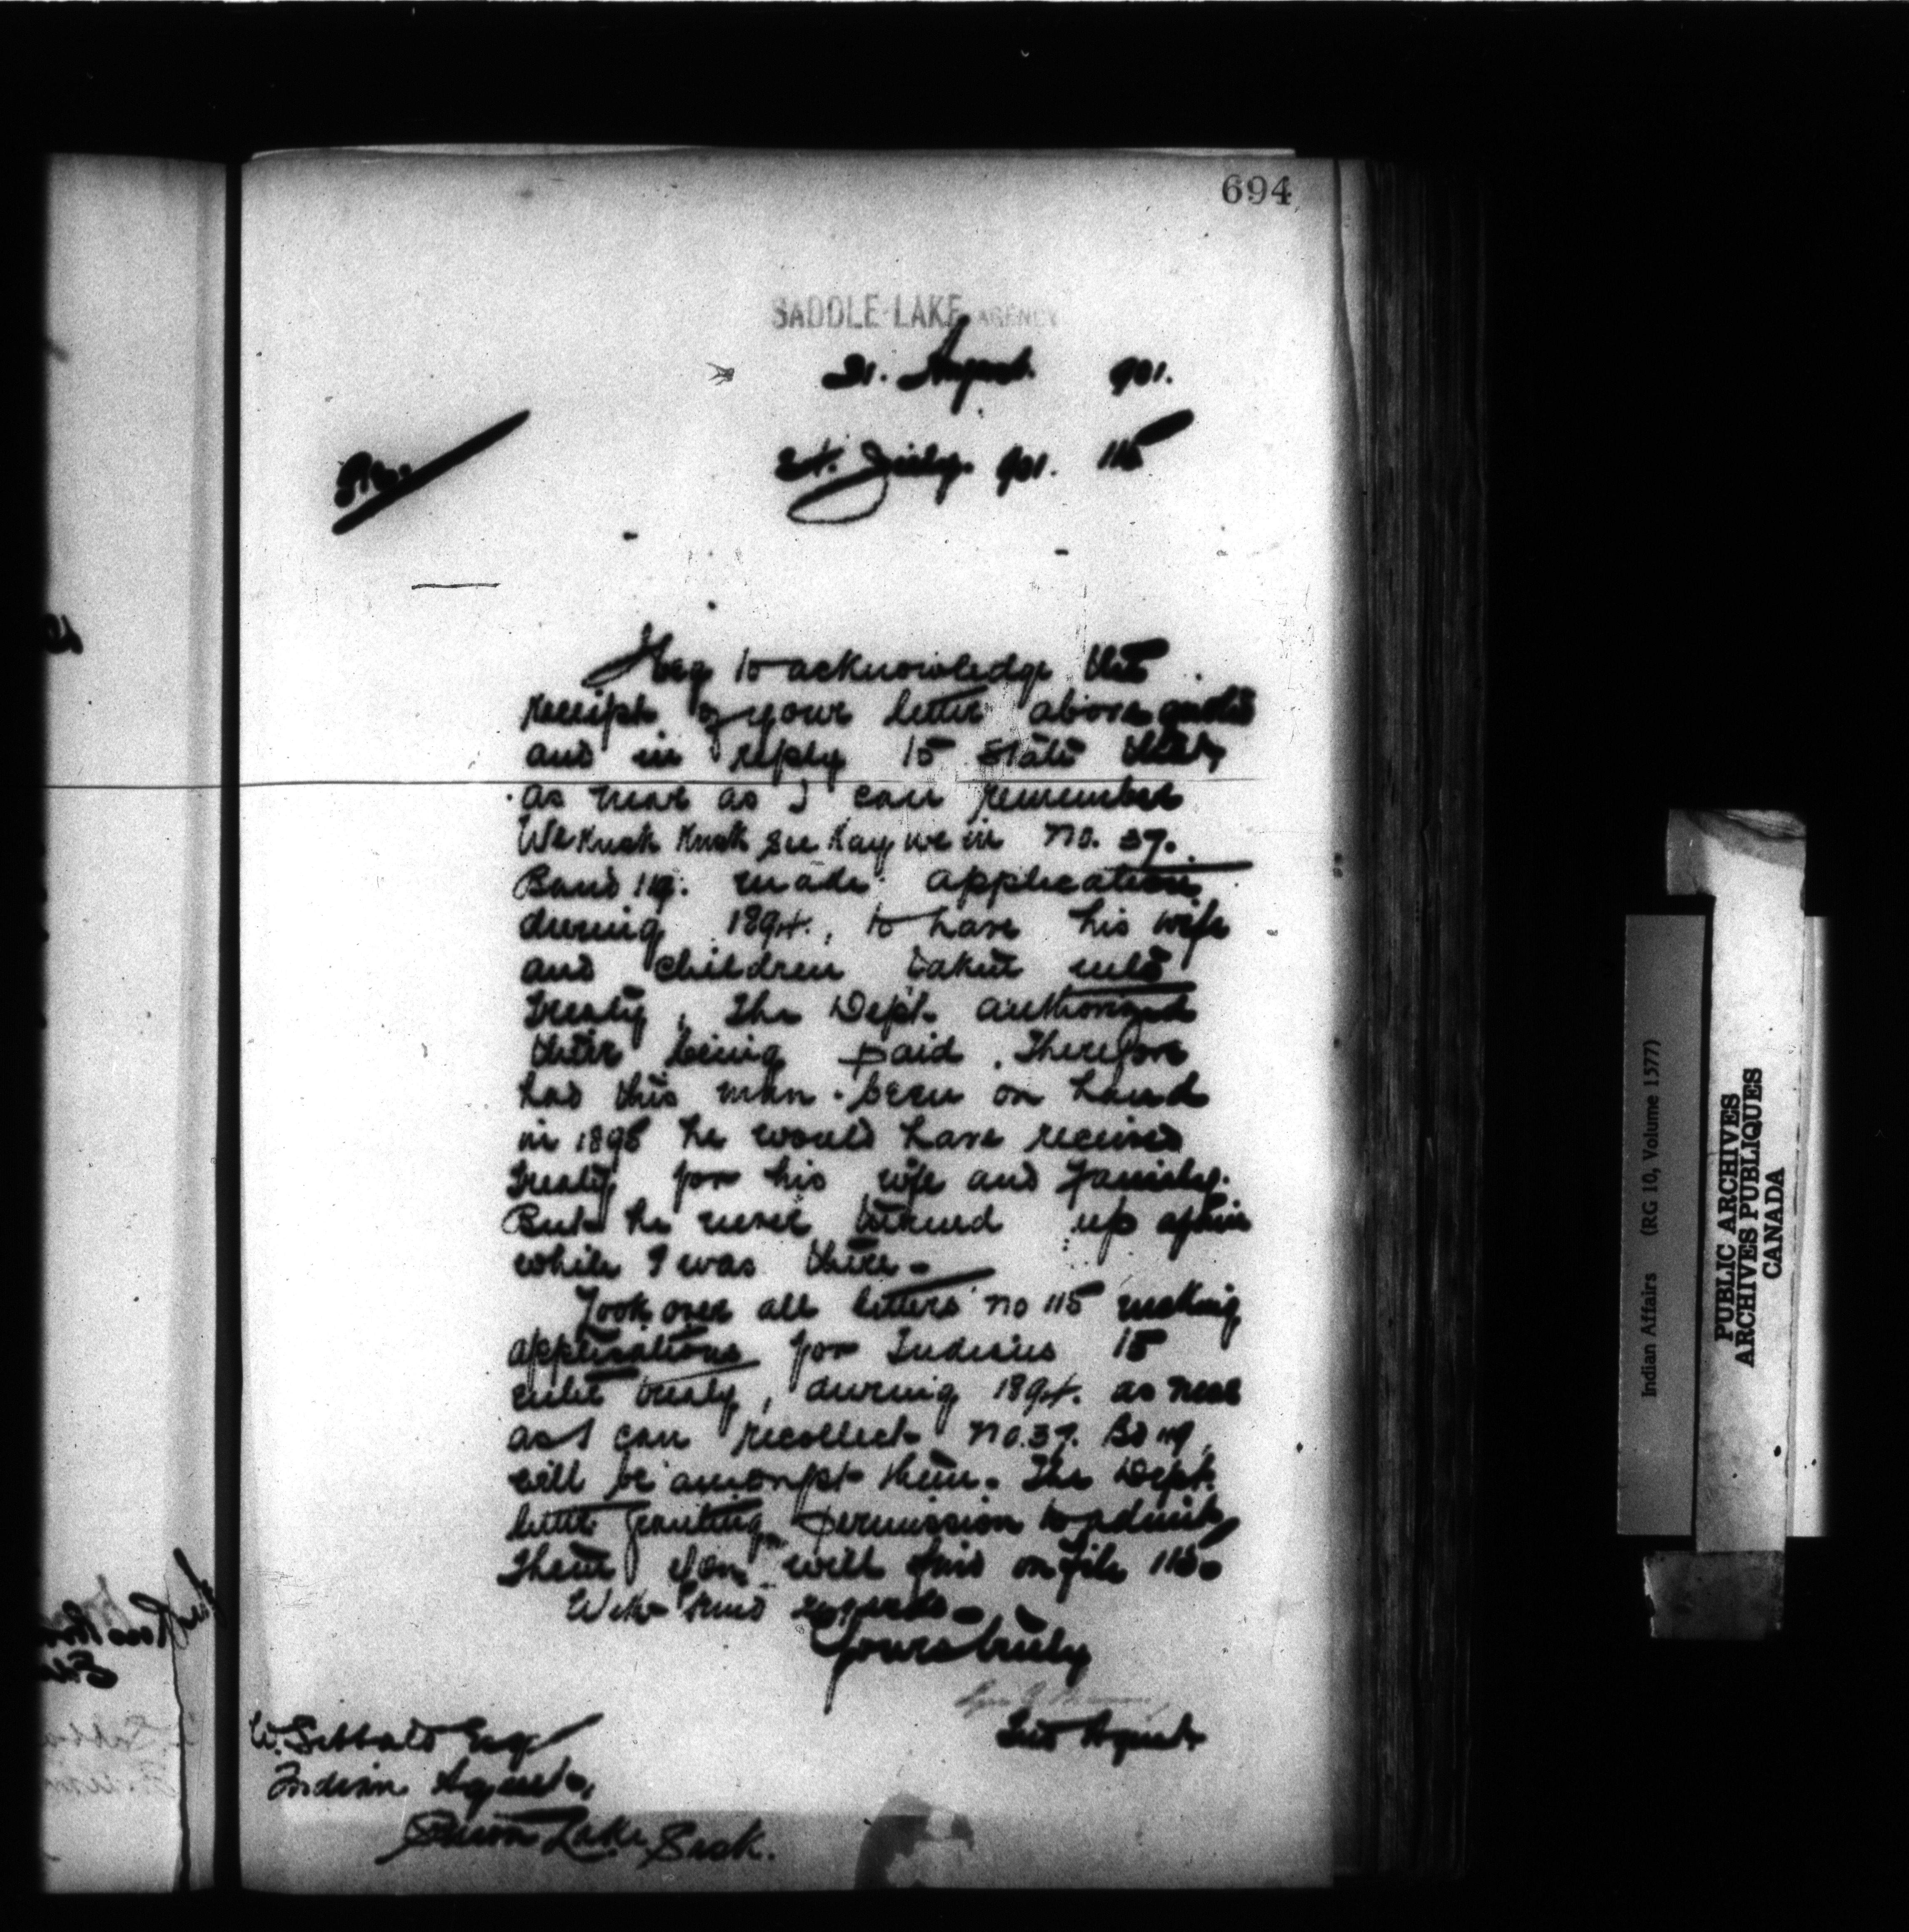 694
SADDLE LAKE AGENCY
21. August 901.
24. July. 901. 115
Sir.
I beg to acknowledge the
receipt of your letter above quoted
and in reply to state that,
as near as I can remember
No. 37.
Band 119. made application
during 1894, to have his wife
and children taken into
Treaty, The Dept. authorized
their being paid. Therefore
had this man been on hand
in 1895 he would have received
Treaty for his wife and family.
But he never turned up again
while I was there.
Look over all letters No 115 making
applications for Indians to
enter treaty, during 1894. as near
as I can recollect No. 37. Bd 119,
will be amongst them. The Dept.
letter granting permission to admit
them you will find on file 115.
With kind regards.
Yours truly
Ind Agent.
W. Sibbald Esq
Indian Agent,
Onion Lake, Sask.
Indian Affairs (RG 10, Volume 1577)
PUBLIC ARCHIVES
ARCHIVES PUBLIQUES
CANADA